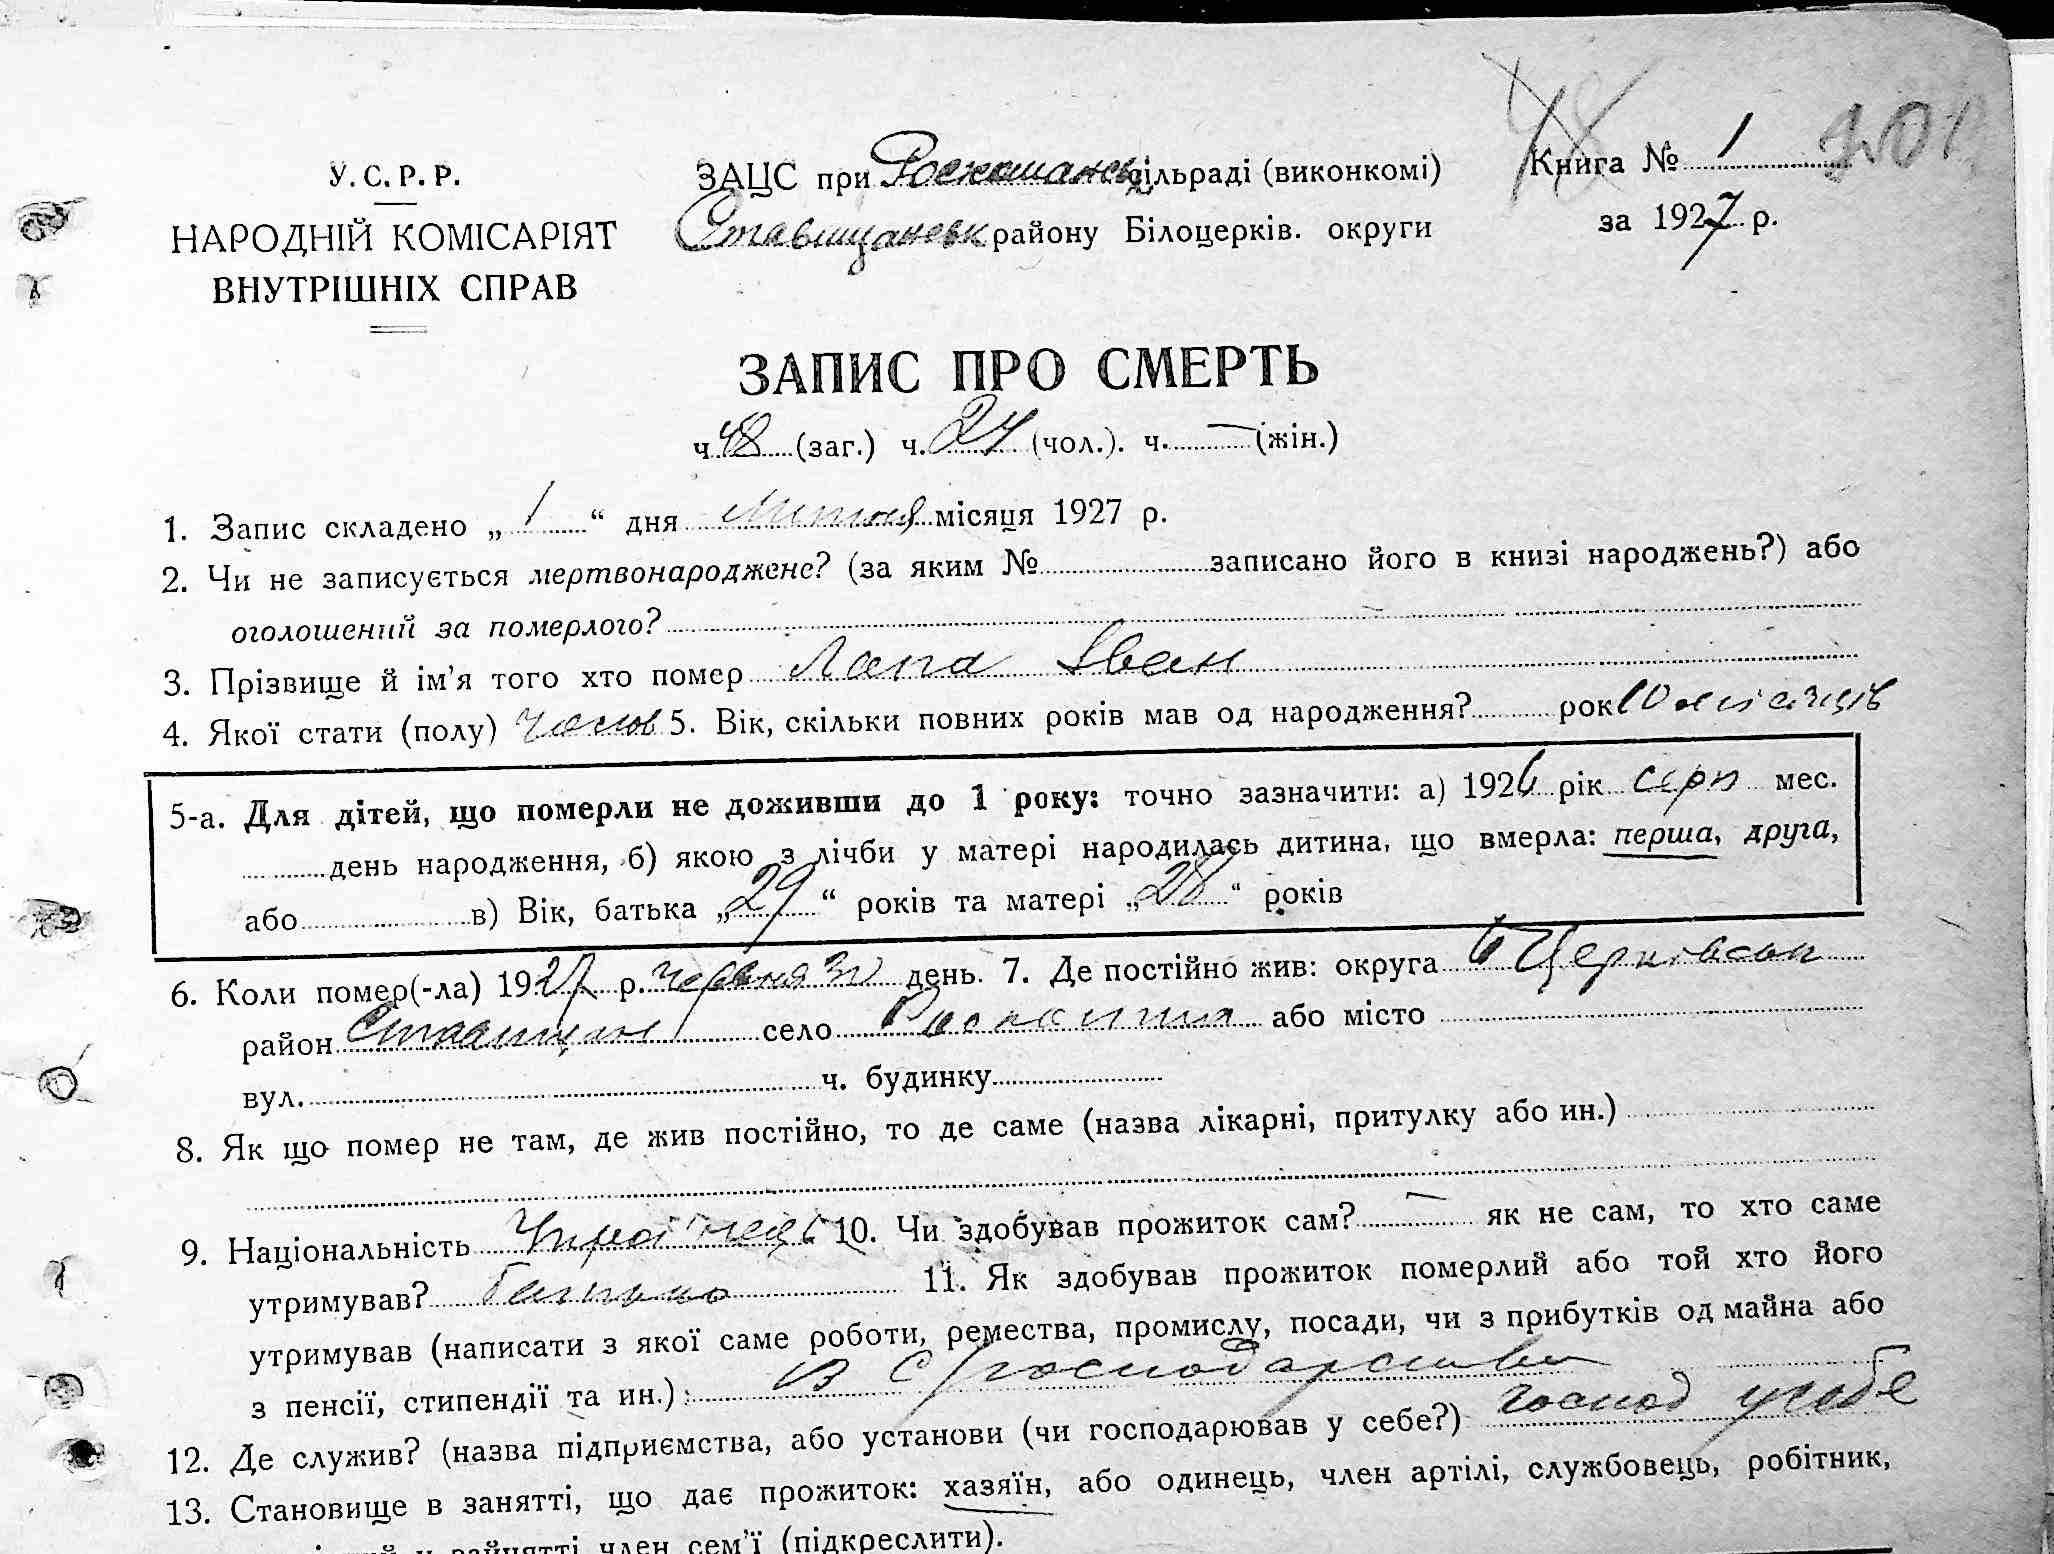 У. С. Р. Р.
НАРОДНІЙ КОМІСАРІЯТ
ВНУТРІШНІХ СПРАВ
ЗАЦС при Роскошанськ сільраді (виконкомі)
Ставищанськ району Білоцерків. округи
Книга № 1
за 1927 р.
ЗАПИС ПРО СМЕРТЬ
ч. 48 (заг.) ч. 24 (чол.). ч. — (жін.)
1. Запис складено „ 1 “ дня Липня місяця 1927 р.
2. Чи не записується мертвонароджене? (за яким № записано його в книзі народжень?) або
оголошений за померлого?
3. Прізвище й ім'я того хто помер Лапа Іван
4. Якої стати (полу) чолов 5. Вік, скільки повних років мав од народження? рок 10 місяців
5-а. Для дітей, що померли не доживши до 1 року: точно зазначити: а) 1926 рік серп мес.
день народження, б) якою з лічби у матері народилась дитина, що вмерла: перша, друга,
або в) Вік, батька „ 29 “ років та матері „ 28 “ років
6. Коли помер(-ла) 1927 р. червня 30 день. 7. Де постійно жив: округа Б Церківськ
район Ставищан село Роскошна або місто
вул. ч. будинку
8. Як що помер не там, де жив постійно, то де саме (назва лікарні, притулку або ин.)
9. Національність Україінець 10. Чи здобував прожиток сам? — як не сам, то хто саме
утримував? батько 11. Як здобував прожиток померлий або той хто його
утримував (написати з якої саме роботи, ремества, промислу, посади, чи з прибутків од майна або
з пенсії, стипендії та ин.): в с/господарстві
12. Де служив? (назва підприємства, або установи (чи господарював у себе?) господ у себе
13. Становище в занятті, що дає прожиток: хазяїн, або одинець, член артілі, службовець, робітник,
член сем'ї (підкреслити).